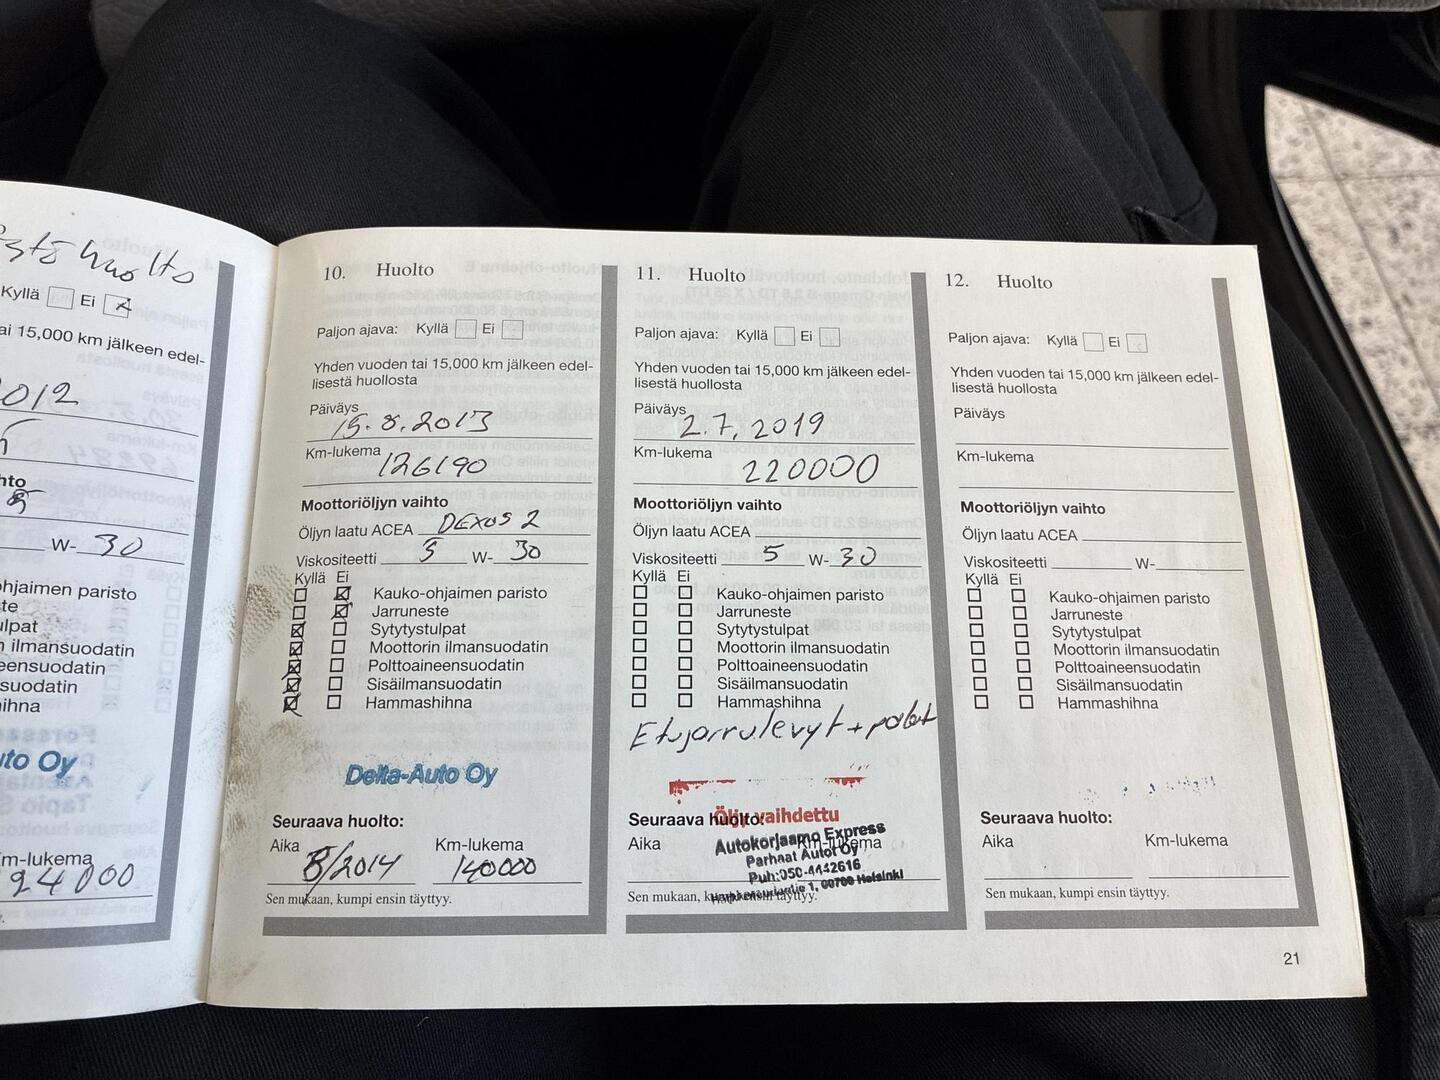 huolto
Kyllä Ei
ai 15,000 km jälkeen edel-
2012
hto
5
W- 30
ohjaimen paristo
ste
tulpat
n ilmansuodatin
eensuodatin
suodatin
ihna
uto Oy
Km-lukema
24000
10. Huolto
Paljon ajava: Kyllä Ei
Yhden vuoden tai 15,000 km jälkeen edel-
lisestä huollosta
Päiväys
15.8.2013
Km-lukema
126190
Moottoriöljyn vaihto
Öljyn laatu ACEA DEXOS 2
Viskositeetti 5 W- 30
Kyllä Ei
Kauko-ohjaimen paristo
Jarruneste
Sytytystulpat
Moottorin ilmansuodatin
Polttoaineensuodatin
Sisäilmansuodatin
Hammashihna
Delta-Auto Oy
Seuraava huolto:
Aika Km-lukema
8/2014 140000
Sen mukaan, kumpi ensin täyttyy.
11. Huolto
Paljon ajava: Kyllä Ei
Yhden vuoden tai 15,000 km jälkeen edel-
lisestä huollosta
Päiväys
2.7.2019
Km-lukema
220000
Moottoriöljyn vaihto
Öljyn laatu ACEA
Viskositeetti 5 W- 30
Kyllä Ei
Kauko-ohjaimen paristo
Jarruneste
Sytytystulpat
Moottorin ilmansuodatin
Polttoaineensuodatin
Sisäilmansuodatin
Hammashihna
Etujarrulevyt + palat
Öljy vaihdettu
Seuraava huolto:
Autokorjaamo Express
Aika Km-lukema
Parhaat Autot Oy
Puh:050-4442616
1, 00700 Helsinki
Sen mukaan, kumpi ensin täyttyy.
12. Huolto
Paljon ajava: Kyllä Ei
Yhden vuoden tai 15,000 km jälkeen edel-
lisestä huollosta
Päiväys
Km-lukema
Moottoriöljyn vaihto
Öljyn laatu ACEA
Viskositeetti W-
Kyllä Ei
Kauko-ohjaimen paristo
Jarruneste
Sytytystulpat
Moottorin ilmansuodatin
Polttoaineensuodatin
Sisäilmansuodatin
Hammashihna
Seuraava huolto:
Aika Km-lukema
Sen mukaan, kumpi ensin täyttyy.
21